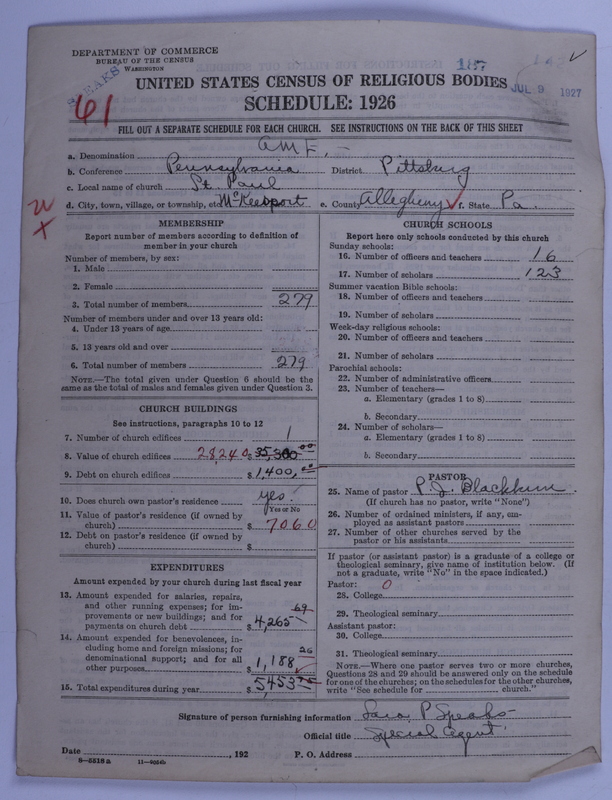 DEPARTMENT OF COMMERCE
BUREAU OF THE CENSUS
WASHINGTON
SPEAKS
187
JUL 9 1927
61
UNITED STATES CENSUS OF RELIGIOUS BODIES
SCHEDULE: 1926
FILL OUT A SEPARATE SCHEDULE FOR EACH CHURCH. SEE INSTRUCTIONS ON THE BACK OF THIS SHEET
a. Denomination A.M.E.
b. Conference Pennsylvania District Pittsburg
c. Local name of church St. Paul
d. City, town, village, or township, etc McKeesport e. County Allegheny f. State Pa.
MEMBERSHIP
Report number of members according to definition of
member in your church
Number of members, by sex:
1. Male
2. Female
3. Total number of members 279
Number of members under and over 13 years old:
4. Under 13 years of age
5. 13 years old and over
6. Total number of members 279
NOTE.—The total given under Question 6 should be the
same as the total of males and females given under Question 3.
CHURCH BUILDINGS
See instructions, paragraphs 10 to 12
7. Number of church edifices 1
8. Value of church edifices 28240 $ 35,300 00
9. Debt on church edifices $ 1,400, 00
10. Does church own pastor's residence yes.
Yes or No
11. Value of pastor's residence (if owned by
church) $ 7060
12. Debt on pastor's residence (if owned by
church) $
EXPENDITURES
Amount expended by your church during last fiscal year
13. Amount expended for salaries, repairs,
and other running expenses; for im-
provements or new buildings; and for
payments on church debt $ 4,265 69
14. Amount expended for benevolences, in-
cluding home and foreign missions; for
denominational support; and for all
other purposes $ 1,188 26
15. Total expenditures during year $ 5453 95
CHURCH SCHOOLS
Report here only schools conducted by this church
Sunday schools:
16. Number of officers and teachers 16
17. Number of scholars 123
Summer vacation Bible schools:
18. Number of officers and teachers
19. Number of scholars
Week-day religious schools:
20. Number of officers and teachers
21. Number of scholars
Parochial schools:
22. Number of administrative officers
23. Number of teachers—
a. Elementary (grades 1 to 8)
b. Secondary
24. Number of scholars—
a. Elementary (grades 1 to 8)
b. Secondary
PASTOR
25. Name of pastor P. J. Blackburn
(If church has no pastor, write "None")
26. Number of ordained ministers, if any, em-
ployed as assistant pastors
27. Number of other churches served by the
pastor or his assistants
If pastor (or assistant pastor) is a graduate of a college or
theological seminary, give name of institution below. (If
not a graduate, write "No" in the space indicated.)
Pastor: 0
28. College
29. Theological seminary
Assistant pastor:
30. College
31. Theological seminary
NOTE.—Where one pastor serves two or more churches,
Questions 28 and 29 should be answered only on the schedule
for one of the churches; on the schedules for the other churches,
write "See schedule for church."
Signature of person furnishing information P Speaks
Official title Special Agent.
Date , 192 P. O. Address
8—5518a